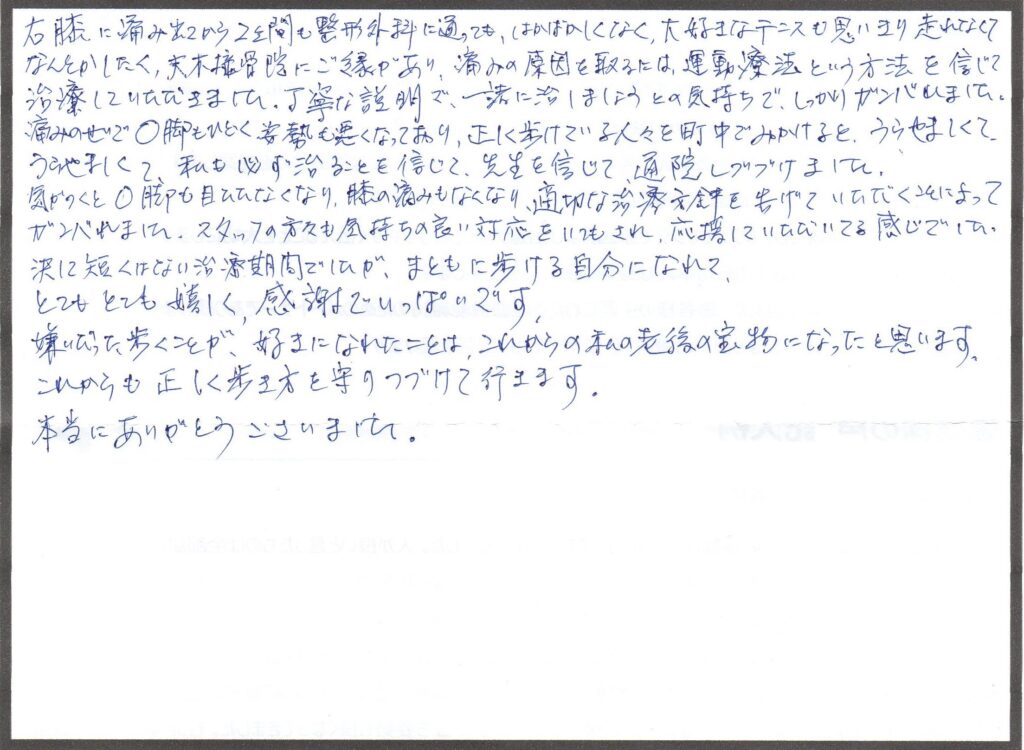 右膝に痛み出てから2年間も整形外科に通っても、はかばかしくなく、大好きなテニスも思いきり走れなくて
なんとかしたく、天木接骨院にご縁があり、痛みの原因を取るには、運動療法という方法を信じて
治療していただきました。丁寧な説明で、一緒に治しましょうとの気持ちで、しっかりガンバれました。
痛みのせいで〇脚もひどく姿勢も悪くなっており、正しく歩けている人々を町中でみかけると、うらやましくて
うらやましくて、私も必ず治ることを信じて、先生を信じて、通院しつづけました。
気がつくと〇脚も目だたなくなり、膝の痛みもなくなり、適切な治療方針を告げていただくことによって
ガンバれました。スタッフの方々も気持ちの良い対応をいつもされ、応援していただいてる感じでした。
決して短くはない治療期間でしたが、まともに歩ける自分になれて、
とてもとても嬉しく、感謝でいっぱいです。
嫌いだった歩くことが、好きになれたことは、これからの私の老後の宝物になったと思います。
これからも正しく歩き方を守りつづけて行きます。
本当にありがとうございました。